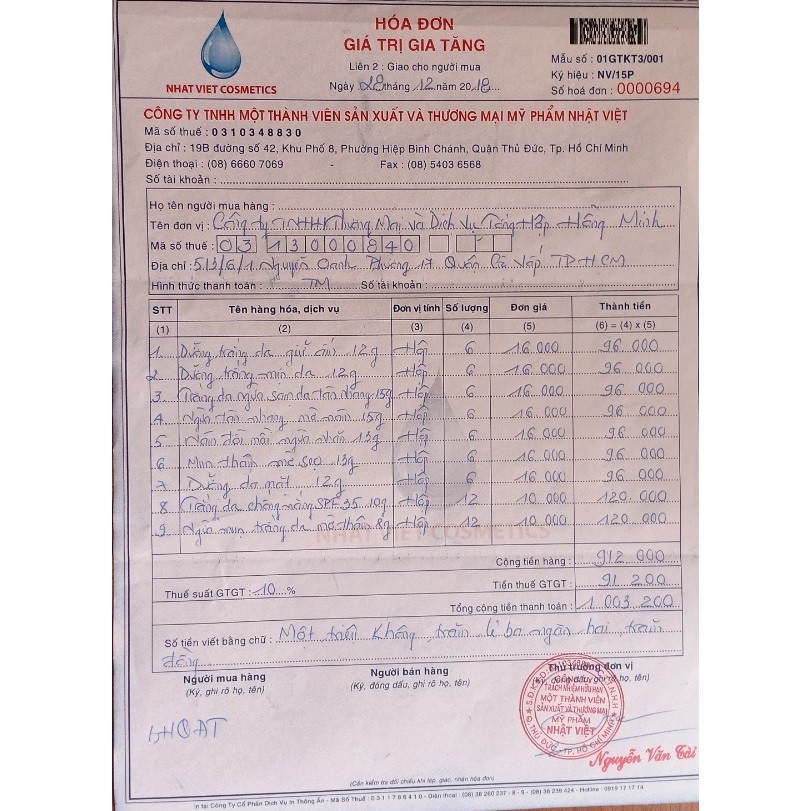 HÓA ĐƠN
GIÁ TRỊ GIA TĂNG
Liên 2 : Giao cho người mua
Ngày 28 tháng 12 năm 2018
NHAT VIET COSMETICS
Mẫu số : 01GTKT3/001
Ký hiệu : NV/15P
Số hoá đơn : 0000694
CÔNG TY TNHH MỘT THÀNH VIÊN SẢN XUẤT VÀ THƯƠNG MẠI MỸ PHẨM NHẬT VIỆT
Mã số thuế : 0310348830
Địa chỉ : 19B đường số 42, Khu Phố 8, Phường Hiệp Bình Chánh, Quận Thủ Đức, Tp. Hồ Chí Minh
Điện thoại : (08) 6660 7069 - Fax : (08) 5403 6568
Số tài khoản :
Họ tên người mua hàng :
Tên đơn vị : Công ty TNHH Thương Mại và Dịch Vụ Tổng Hợp Hồng Minh
Mã số thuế : 0313000840
Địa chỉ : 513/6/1 Nguyễn Oanh Phường 17 Quận Gò Vấp TP HCM
Hình thức thanh toán : TM Số tài khoản :
STT Tên hàng hóa, dịch vụ Đơn vị tính Số lượng Đơn giá Thành tiền
(1) (2) (3) (4) (5) (6) = (4) x (5)
1 Dưỡng trắng da giữ ẩm 12g Hộp 6 16.000 96 000
2 Dưỡng trắng mịn da 12g Hộp 6 16 000 96 000
3 Trắng da ngừa sạm da tàn nhang 15g Hộp 6 16 000 96 000
4 Ngừa tàn nhang mờ nám 15g Hộp 6 16 000 96 000
5 Nám đồi mồi ngừa nhăn 13g Hộp 6 16 000 96 000
6 Mụn thâm mờ sẹo 13g Hộp 6 16 000 96 000
7 Dưỡng da mặt 12g Hộp 6 16 000 96 000
8 Trắng da chống nắng SPF 35 10g Hộp 12 10 000 120 000
9 Ngừa mụn trắng da mờ thâm 8g Hộp 12 10 000 120 000
NHAT VIET COSMETICS
Cộng tiền hàng : 912 000
Thuế suất GTGT : 10 % Tiền thuế GTGT : 91 200
Tổng cộng tiền thanh toán : 1 003 200
Số tiền viết bằng chữ : Một triệu không trăm lẻ ba ngàn hai trăm
đồng
Người mua hàng Người bán hàng Thủ trưởng đơn vị
(Ký, ghi rõ họ, tên) (Ký, đóng dấu, ghi rõ họ, tên) (Ký, đóng dấu, ghi rõ họ, tên)
CÔNG TY
TRÁCH NHIỆM HỮU HẠN
MỘT THÀNH VIÊN
SẢN XUẤT VÀ THƯƠNG MẠI
MỸ PHẨM
NHẬT VIỆT
Q. THỦ ĐỨC - TP. HỒ CHÍ MINH
Nguyễn Văn Tài
(Cần kiểm tra đối chiếu khi lập, giao, nhận hóa đơn)
In tại Công Ty Cổ Phần Dịch Vụ In Thông Ấn - Mã Số Thuế : 0311786410 - Điện thoại : (08) 38 260 237 - 8 - 9 - (08) 38 239 424 - Hotline : 0919 17 17 14